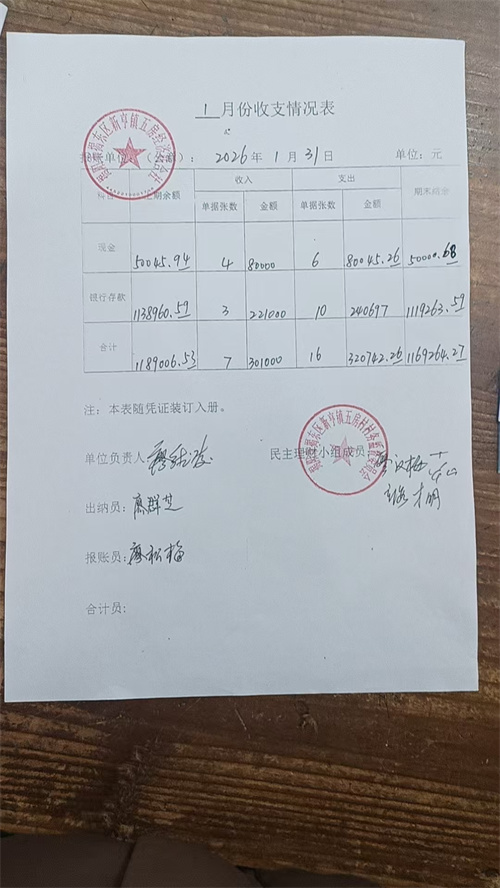 1月份收支情况表
单位：（ ）：2026年1月31日 单位：元
科目 上期余额 收入 支出 期末结余
单据张数 金额 单据张数 金额
现金 50045.94 4 80000 6 80045.26 50000.68
银行存款 1138960.59 3 221000 10 240697 1119263.59
合计 1189006.53 7 301000 16 320742.26 1169264.27
注：本表随凭证装订入册。
单位负责人 民主理财小组成员：
出纳员：廖群芝
报账员：廖松梅
合计员：